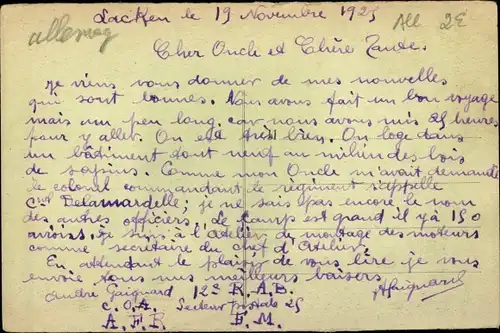 Lacken le 19 Novembre 1925
All 2E
allemag
Cher Oncle et Chère Tante.
Je viens vous donner de mes nouvelles
qui sont bonnes. Nous avons fait un bon voyage
mais un peu long car nous avons mis 25 heures
pour y aller. On est très bien. On loge dans
un bâtiment tout neuf au milieu des bois
de sapins. Comme mon Oncle m'avait demandé
le colonel commandant le régiment s'appelle
Delamardelle; je ne sais pas encore le nom
des autres officiers. Le camp est grand il y a 150
avions. Je suis à l'Atelier de montage des moteurs
comme secrétaire du chef d'Atelier.
En attendant le plaisir de vous lire je vous
envoie tous mes meilleurs baisers
AGuignard
André Guignard 12e R.A.B.
C.O.A. Secteur postale 25
A.F.R. E.M.